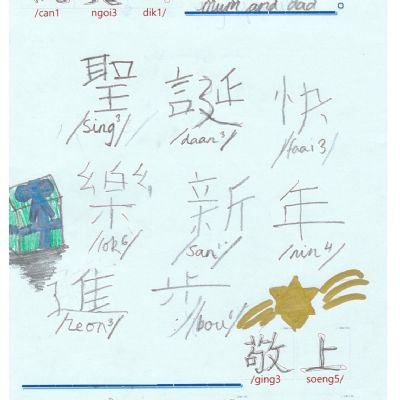 /can1 ngoi3 dik1/
mum and dad
聖 誕 快
/sing³/ /daan³/ /faai3/
樂 新 年
/lok⁶/ /san¹/ /nin⁴/
進 步
/zeon³/ /bou⁶/
敬 上
/ging3 soeng5/